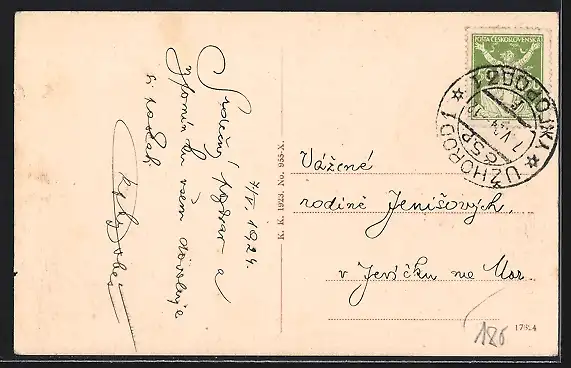 7/V. 1924.
Srdečný pozdrav a
vzpomínku všem dovoluje
si poslati
K. K. 1923. No. 955-X.
POŠTA ČESKOSLOVENSKÁ
UŽHOROD 1
ČSR
7.V.24
Vážené
rodině Jenišových,
v Jevíčku na Mor
180